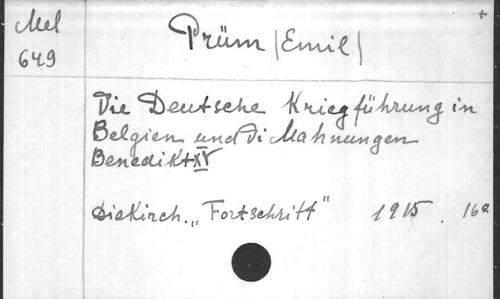 Mel
649
Prüm (Emil)
Die Deutsche Kriegführung in
Belgien und di Mahnungen
Benedikt XV
Diekirch. „Fortschritt" 1915. 16º